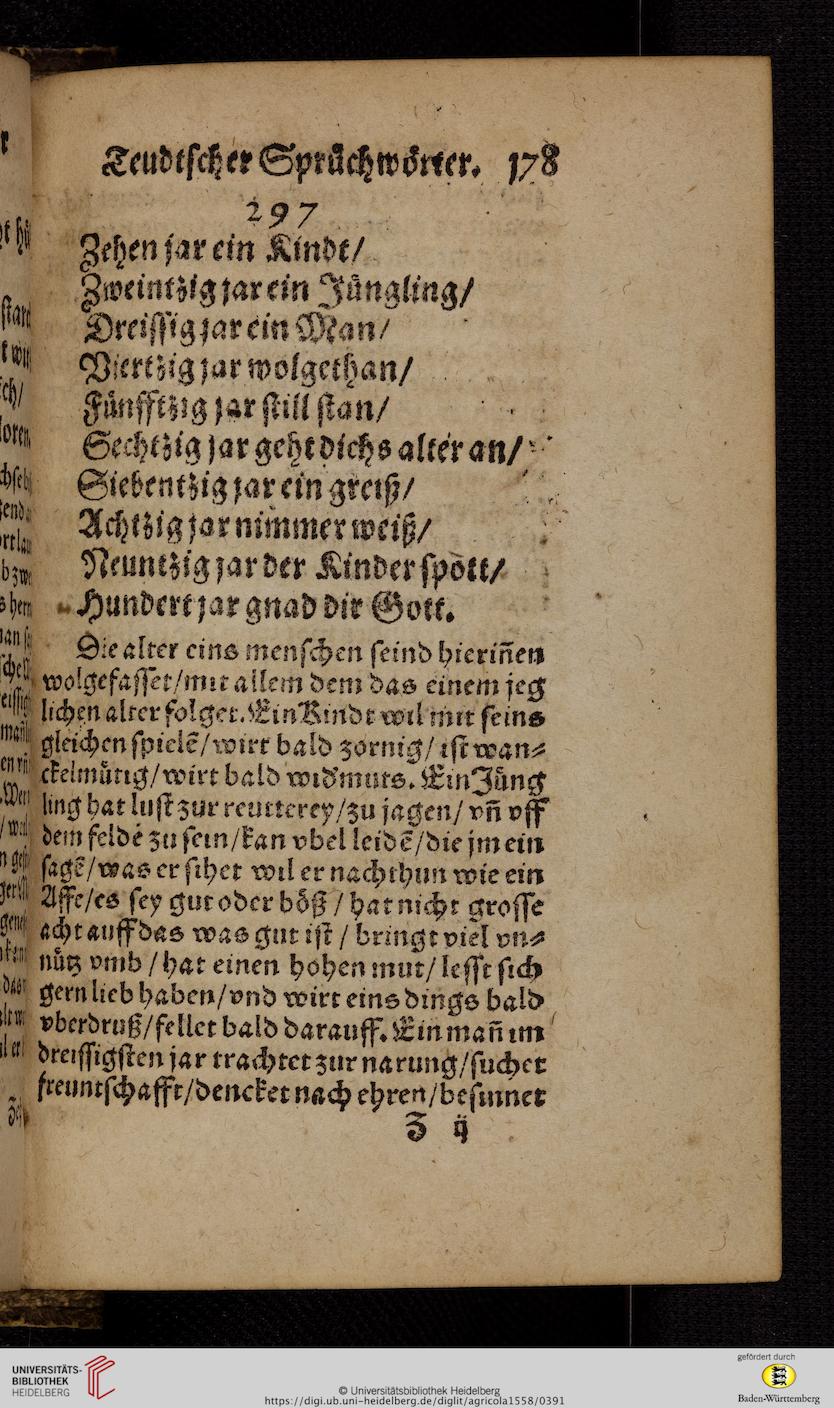 Teudtscher Sprůchwörter. 178
297
Zehen jar ein Kindt/
Zweintzig jar ein Jůngling/
Dreissig jar ein Man/
Viertzig jar wolgethan/
Fůnfftzig jar still stan/
Sechtzig jar geht dichs alter an/
Siebentzig jar ein greiß/
Achtzig jar nimmer weiß/
Neuntzig jar der Kinder spott/
Hundert jar gnad dir Gott.
Die alter eins menschen seind hieriñen
wolgefasset/mit allem dem das einem jeg
lichen alter folget. Ein Kindt wil mit seins
gleichen spielẽ/wirt bald zornig/ist wan⸗
ckelmůtig/wirt bald widmuts. Ein Jůng
ling hat lust zur reutterey/zu jagen/vñ vff
dem felde zu sein/kan vbel leidẽ/die jm ein
sagẽ/was er sihet wil er nachthun wie ein
Affe/es sey gut oder bőß/hat nicht grosse
acht auff das was gut ist/bringt viel vn⸗
nůtz vmb/hat einen hohen mut/lesst sich
gern lieb haben/vnd wirt eins dings bald
vberdruß/fellet bald darauff. Ein mañ im
dreissigsten jar trachtet zur narung/suchet
freuntschafft/dencket nach ehren/besinnet
Z ij
UNIVERSITÄTS-
BIBLIOTHEK
HEIDELBERG
© Universitätsbibliothek Heidelberg
https://digi.ub.uni-heidelberg.de/diglit/agricola1558/0391
gefördert durch
Baden-Württemberg